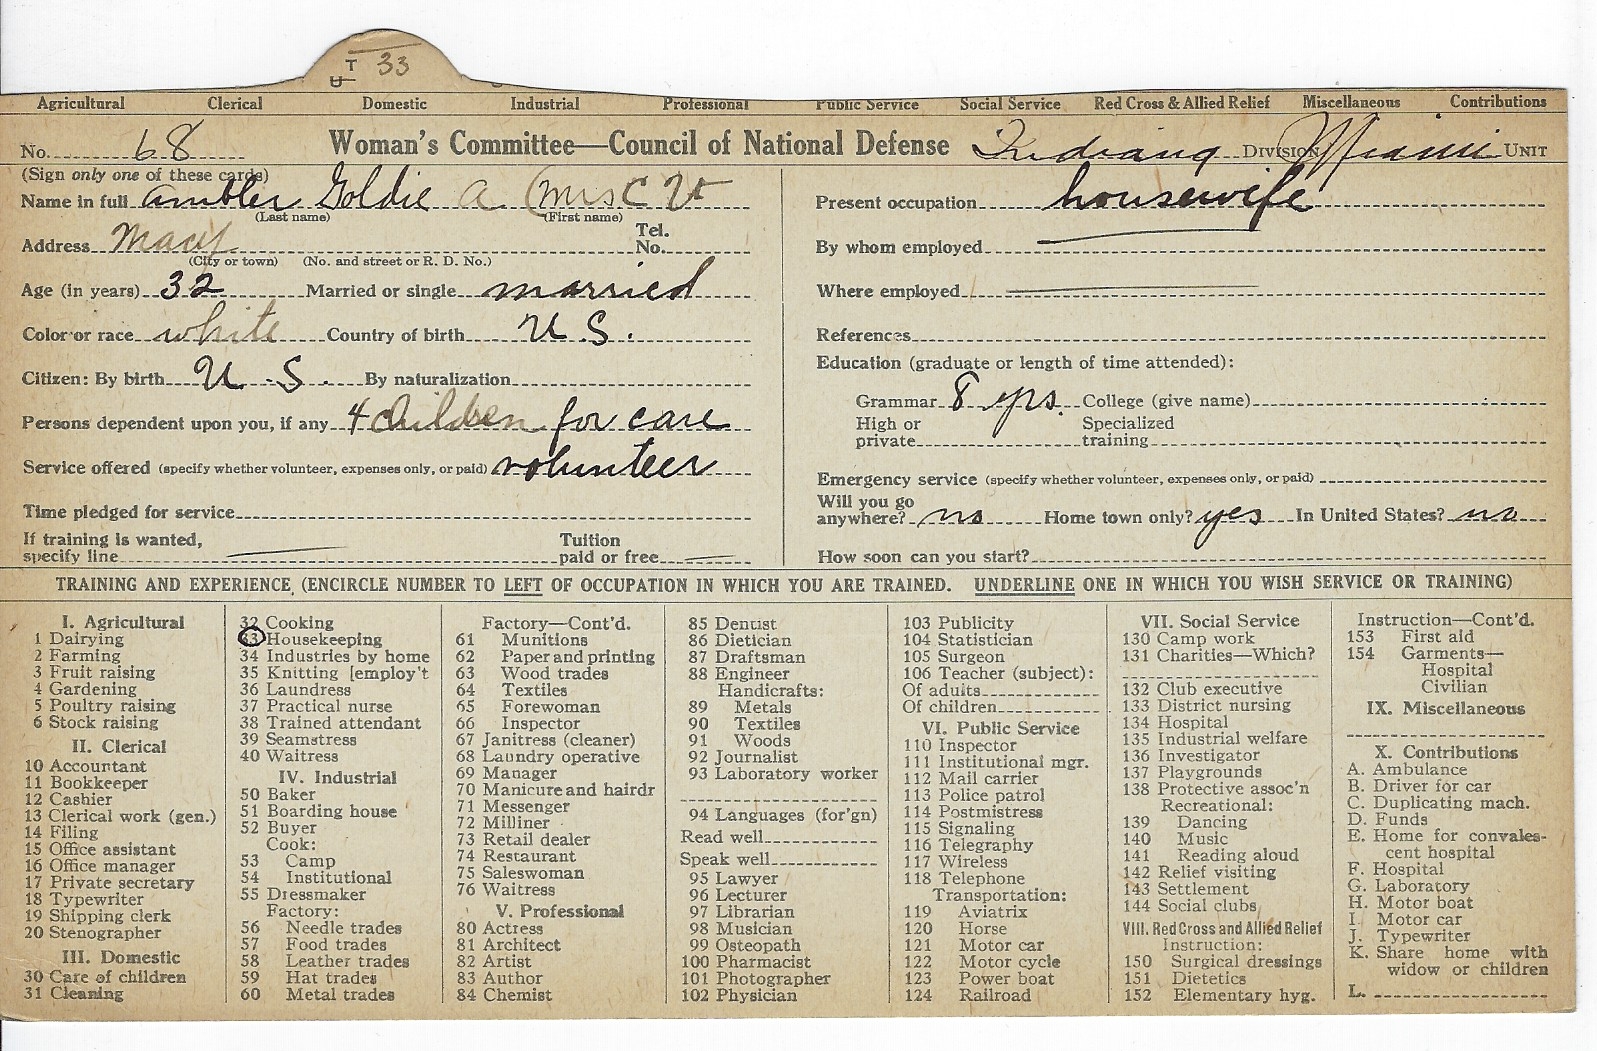 T 33
U
Agricultural Clerical Domestic Industrial Professional Public Service Social Service Red Cross & Allied Relief Miscellaneous Contributions
No. 68 Woman's Committee—Council of National Defense Indiana Division Miami Unit
(Sign only one of these cards)
Name in full Ambler Goldie A. (Mrs C V
(Last name) (First name)
Address Macy Tel. No.
(City or town) (No. and street or R. D. No.)
Age (in years) 32 Married or single married
Color or race white Country of birth U.S.
Citizen: By birth U.S. By naturalization
Persons dependent upon you, if any 4 children for care
Service offered (specify whether volunteer, expenses only, or paid) volunteer
Time pledged for service
If training is wanted, specify line Tuition paid or free
Present occupation housewife
By whom employed
Where employed
References
Education (graduate or length of time attended):
Grammar 8 yrs. College (give name)
High or private Specialized training
Emergency service (specify whether volunteer, expenses only, or paid)
Will you go anywhere? no Home town only? yes In United States? no
How soon can you start?
TRAINING AND EXPERIENCE, (ENCIRCLE NUMBER TO LEFT OF OCCUPATION IN WHICH YOU ARE TRAINED. UNDERLINE ONE IN WHICH YOU WISH SERVICE OR TRAINING)
I. Agricultural
1 Dairying
2 Farming
3 Fruit raising
4 Gardening
5 Poultry raising
6 Stock raising
II. Clerical
10 Accountant
11 Bookkeeper
12 Cashier
13 Clerical work (gen.)
14 Filing
15 Office assistant
16 Office manager
17 Private secretary
18 Typewriter
19 Shipping clerk
20 Stenographer
III. Domestic
30 Care of children
31 Cleaning
32 Cooking
33 Housekeeping
34 Industries by home
35 Knitting [employ't
36 Laundress
37 Practical nurse
38 Trained attendant
39 Seamstress
40 Waitress
IV. Industrial
50 Baker
51 Boarding house
52 Buyer
Cook:
53 Camp
54 Institutional
55 Dressmaker
Factory:
56 Needle trades
57 Food trades
58 Leather trades
59 Hat trades
60 Metal trades
Factory—Cont'd.
61 Munitions
62 Paper and printing
63 Wood trades
64 Textiles
65 Forewoman
66 Inspector
67 Janitress (cleaner)
68 Laundry operative
69 Manager
70 Manicure and hairdr
71 Messenger
72 Milliner
73 Retail dealer
74 Restaurant
75 Saleswoman
76 Waitress
V. Professional
80 Actress
81 Architect
82 Artist
83 Author
84 Chemist
85 Dentist
86 Dietician
87 Draftsman
88 Engineer
Handicrafts:
89 Metals
90 Textiles
91 Woods
92 Journalist
93 Laboratory worker
94 Languages (for'gn)
Read well
Speak well
95 Lawyer
96 Lecturer
97 Librarian
98 Musician
99 Osteopath
100 Pharmacist
101 Photographer
102 Physician
103 Publicity
104 Statistician
105 Surgeon
106 Teacher (subject):
Of adults
Of children
VI. Public Service
110 Inspector
111 Institutional mgr.
112 Mail carrier
113 Police patrol
114 Postmistress
115 Signaling
116 Telegraphy
117 Wireless
118 Telephone
Transportation:
119 Aviatrix
120 Horse
121 Motor car
122 Motor cycle
123 Power boat
124 Railroad
VII. Social Service
130 Camp work
131 Charities—Which?
132 Club executive
133 District nursing
134 Hospital
135 Industrial welfare
136 Investigator
137 Playgrounds
138 Protective assoc'n
Recreational:
139 Dancing
140 Music
141 Reading aloud
142 Relief visiting
143 Settlement
144 Social clubs
VIII. Red Cross and Allied Relief
Instruction:
150 Surgical dressings
151 Dietetics
152 Elementary hyg.
Instruction—Cont'd.
153 First aid
154 Garments—
Hospital
Civilian
IX. Miscellaneous
X. Contributions
A. Ambulance
B. Driver for car
C. Duplicating mach.
D. Funds
E. Home for convales-
cent hospital
F. Hospital
G. Laboratory
H. Motor boat
I. Motor car
J. Typewriter
K. Share home with
widow or children
L.